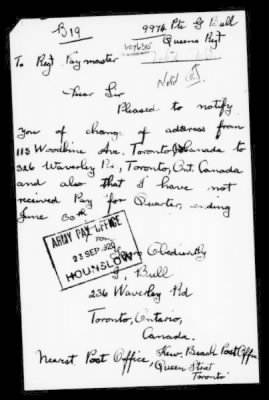 B19
9974 Pte G Bull
Queens Regt
To Regt Paymaster
Noted
Dear Sir
Pleased to notify
you of change of address from
115 Woodbine Ave, Toronto, Canada to
326 Waverley Rd, Toronto, Ont. Canada
and also that I have not
received Pay for Quarter, ending
June 30th
ARMY PAY OFFICE
23 SEP 1920
HOUNSLOW
Obediently
G. Bull
236 Waverley Rd
Toronto, Ontario,
Canada.
Nearest Post Office, Kew Beach Post Office
Queen Street
Toronto